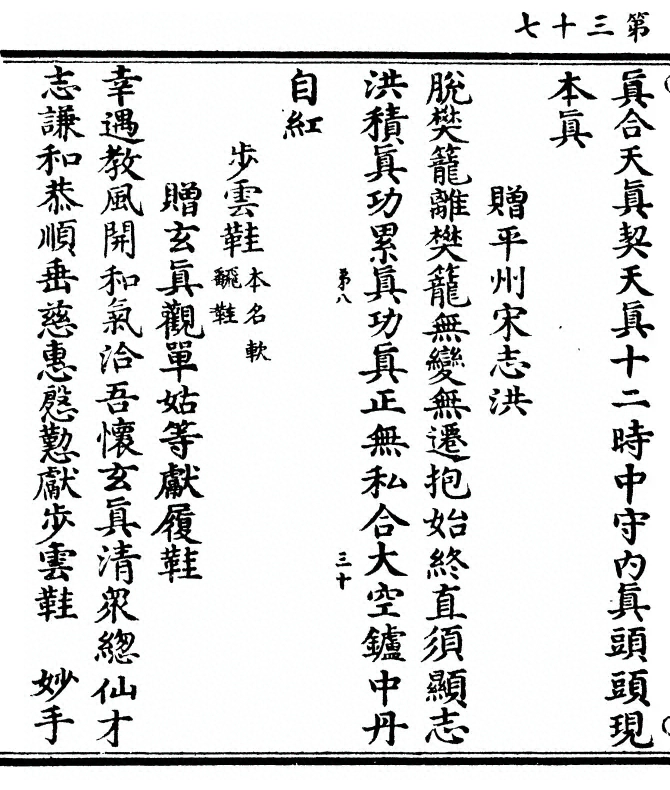 第三十七
眞合天眞契天眞十二時中守内眞頭頭現
本眞
贈平州宋志洪
脫樊籠離樊籠無變無遷抱始終直須顯志
洪積眞功累眞功眞正無私合大空鑪中丹
第八
三十
自紅
步雲鞋本名軟
飜鞋
贈玄眞觀單姑等獻履鞋
幸遇教風開和氣洽吾懷玄眞清衆總仙才
志謙和恭順垂慈惠慇懃獻步雲鞋　妙手